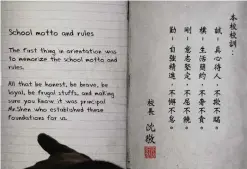 School motto and rules
The first thing in orientation was
to memorize the school motto and
rules.
All that be honest, be brave, be
loyal, be frugal stuffs, and making
sure you know it was principal
Mr.Shen who established these
foundations for us.
本校校訓：
誠－真心待人，不欺不瞞。
樸－生活簡約，不奢不貪。
剛－意志堅定，不屈不撓。
勤－自強精進，不懈不怠。
校長 沈敬